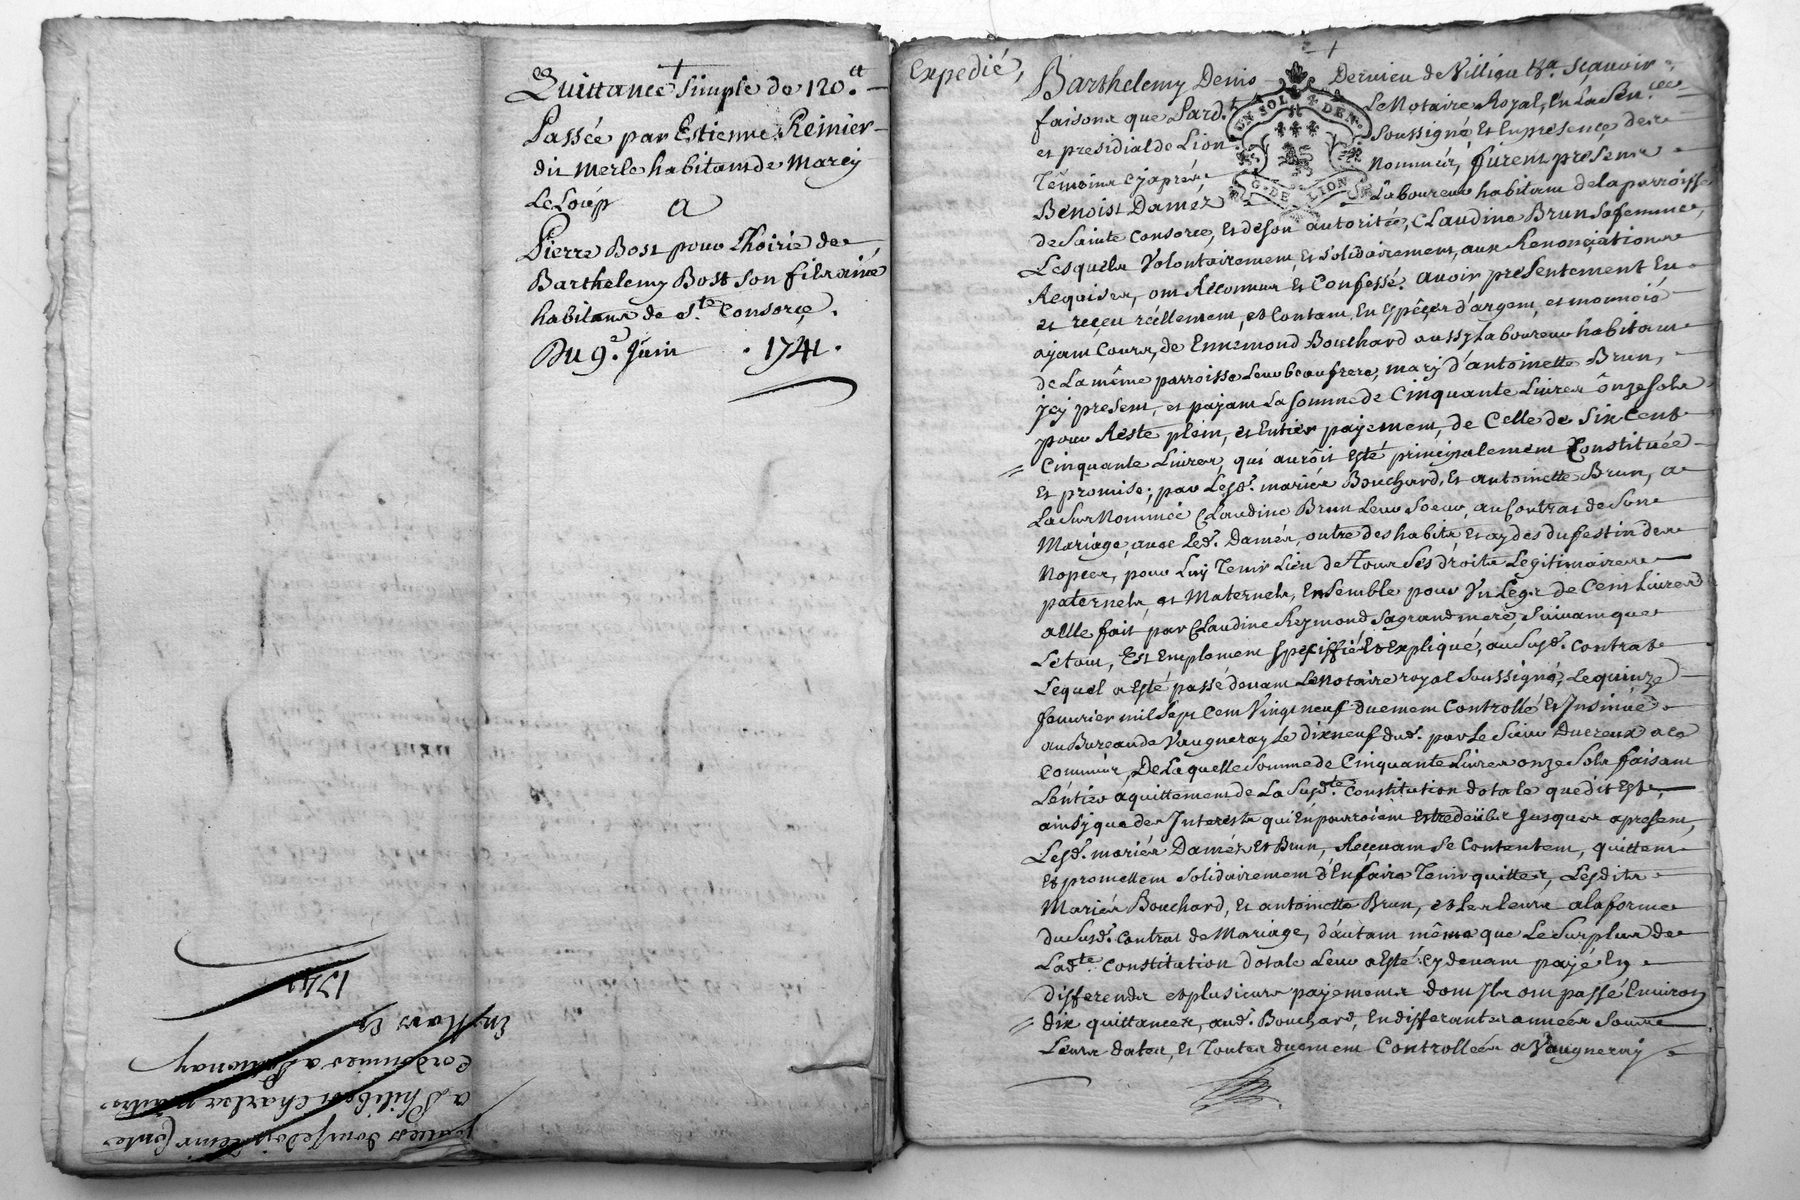 Quittance simple de 120.tt
Passée par Estienne Reinier
dit merle habitant de Marcy
Le Loup
a
Pierre Bost pour l'hoirie de
Barthelemy Bost son fils ainé
habitans de S.te Consorce.
Du 9.e Juin 1741.
1742
En Mars
Cordonnier a
a Philibert Charles
Expedié,
Barthelemy Denis Dervieu de Villieu sçavoir
faisons que Pard.t Le Notaire Royal, En La Sen.cée
et presidial de Lion soussigné, et En presence des
Témoins cy après Nommés, furent presents
Benoist Damez Laboureur habitant de la parroisse
de Sainte Consorce, Et de son autorité, Claudine Brun sa femme,
Lesquels Volontairement, et solidairement, aux Renonçiations
Requises, ont Reconnus Et Confessé avoir presentement Eu
et reçeu réellement, et Contant, En Espêçes d'argent, et monnoie
ayant Cours, de Ennemond Bouchard aussy Laboureur habitant
de La même parroisse Leur beaufrere, mary d'antoinette Brun,
jcy present, et payant La somme de Cinquante Livres ônze sols
pour Reste plein, et Entier payement, de Celle de Six Cent
Cinquante Livres, qui auroit Esté principalement Constituée
Et promise, par Lesd. mariés Bouchard, Et antoinette Brun, a
La Sus Nommée Claudine Brun Leur soeur, au Contrat de Son
Mariage, avec Led. Damés, outre des habits, Et aydes du festin des
Nopces, pour Luy Tenir Lieu de Tous Ses droits Legitimaires
paternels, et Maternels, Ensemble pour Un Légs de Cent Livres
a Elle fait par Claudine Reymond Sa grand mere, Suivant que
Le tout, Est Emplement speciffié Et Expliqué, au Susd. Contrat
Lequel a Esté passé devant Le Notaire royal Soussigné, Le quinze
fevrier mil Sept Cent Vingt neuf duement Controllé Et Insinué
au Bureau de Vaugneray Le dixneuf dud. par Le Sieur Ducreux a ce
Commis, De Laquelle Somme de Cinquante Livres onze Sols faisant
L'éntier aquittement de La Susd.te Constitution dotale que dit Est,
ainsy que des Interests qui En pourroient Estre deübs Jusques a present,
Lesd. mariés Damés Et Brun, Reçevant Se Contentent, quittent
Et promettent Solidairement d'En faire Tenir quittes, Lesdits
Mariés Bouchard, Et antoinette Brun, et Les leurs a la forme
du Susd. Contrat de Mariage, d'autant même que Le Surplus de
Lad.te Constitution dotale Leur a Esté Cy devant payé En
differends et plusieurs payements dont Ils ont passé Environ
dix quittances, aud. Bouchard, En differantes années Sous
Leurs dates, Et Toutes duement Controllées a Vaugneray
UN SOL 4 DEN.
G. DE LION